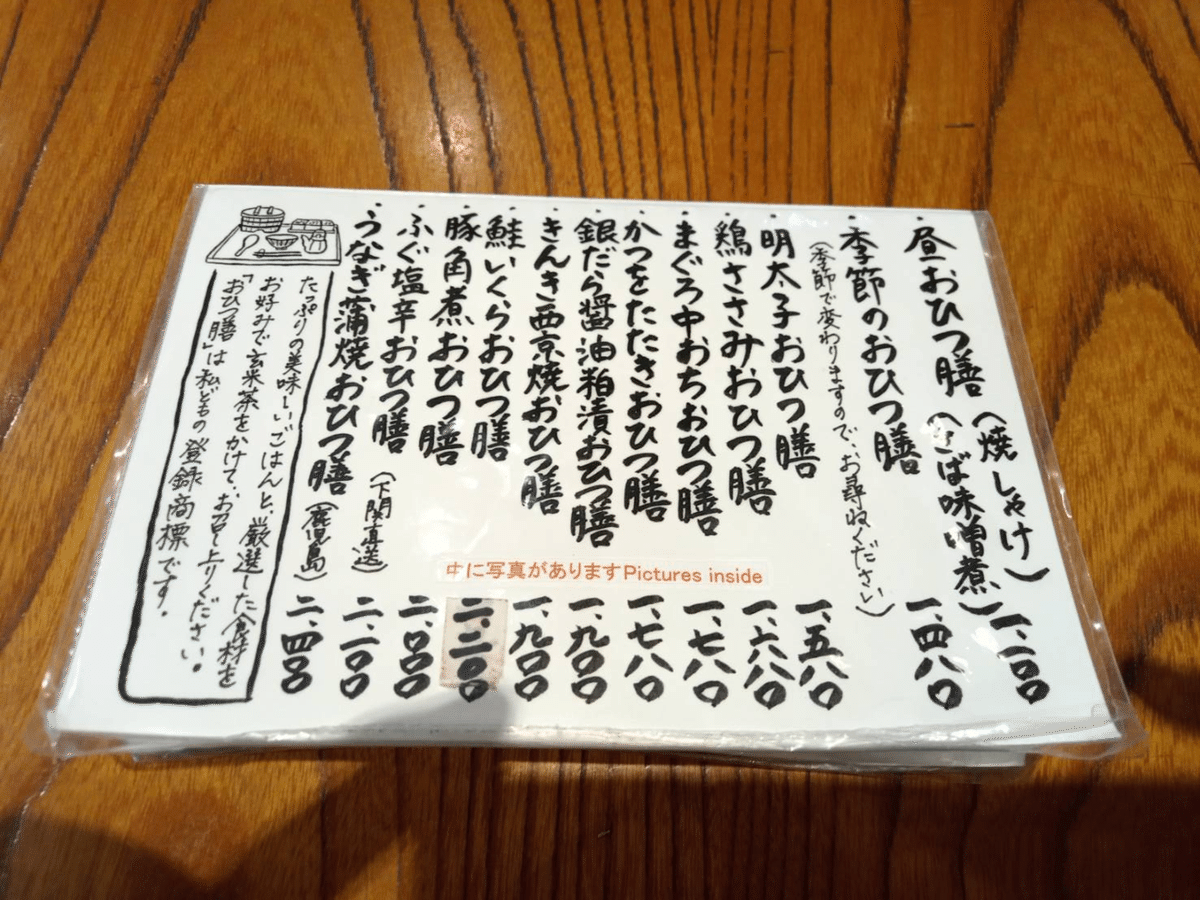 ・昼おひつ膳（焼しゃけ）
（さば味噌煮）一、一〇〇
・季節のおひつ膳 一、四八〇
（季節で変わりますので、お尋ねください）
・明太子おひつ膳 一、五八〇
・鶏ささみおひつ膳 一、六八〇
・まぐろ中おちおひつ膳 一、七八〇
・かつをたたきおひつ膳 一、七八〇
・銀だら醤油粕漬おひつ膳 一、九〇〇
・きんき西京焼おひつ膳 一、九〇〇
・鮭いくらおひつ膳 二、二〇〇
・豚角煮おひつ膳 二、〇〇〇
・ふぐ塩辛おひつ膳（下関直送）二、一〇〇
・うなぎ蒲焼おひつ膳（鹿児島）二、四〇〇
中に写真がありますPictures inside
たっぷりの美味しいごはんと、厳選した食材を
お好みで玄米茶をかけて、お召し上りください。
「おひつ膳」は私どもの登録商標です。